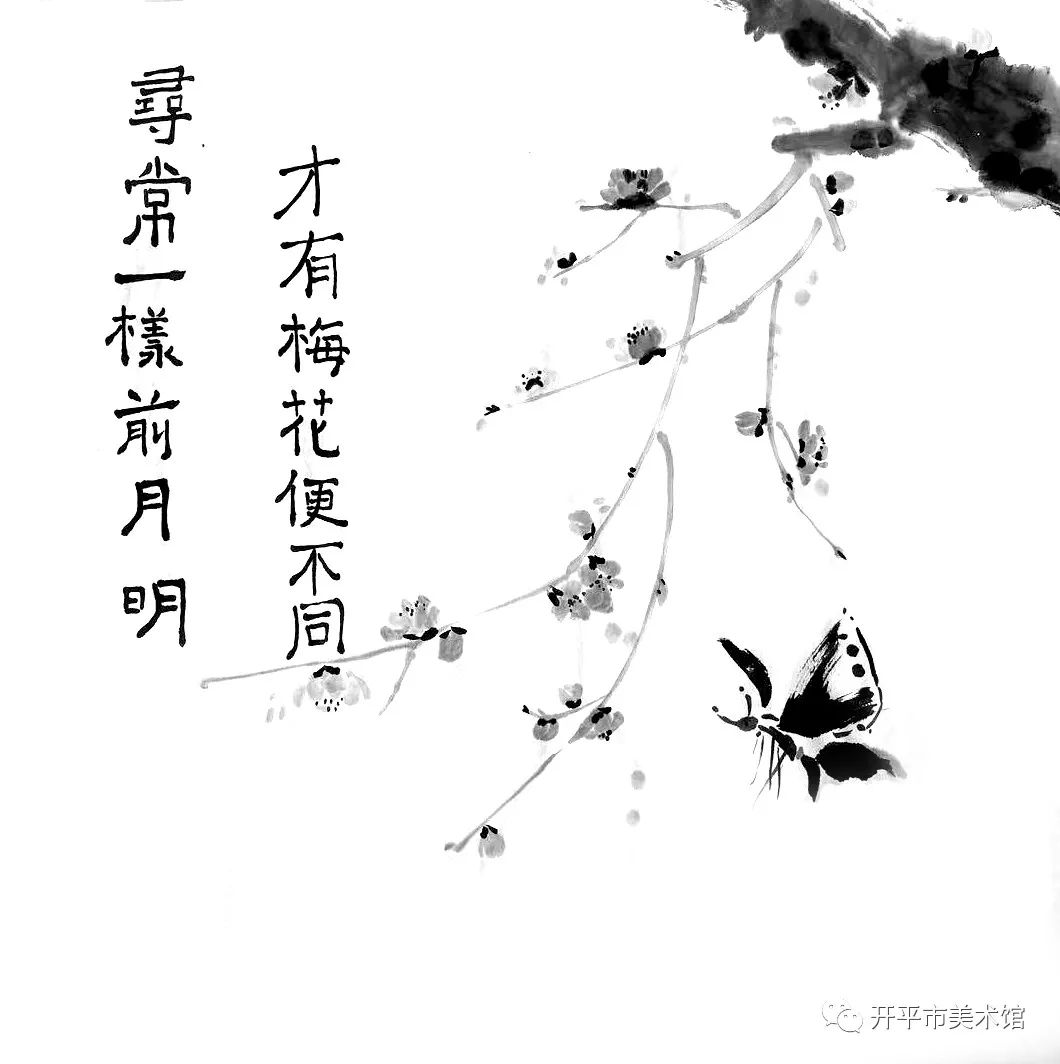 尋常一樣前月明
才有梅花便不同
开平市美术馆